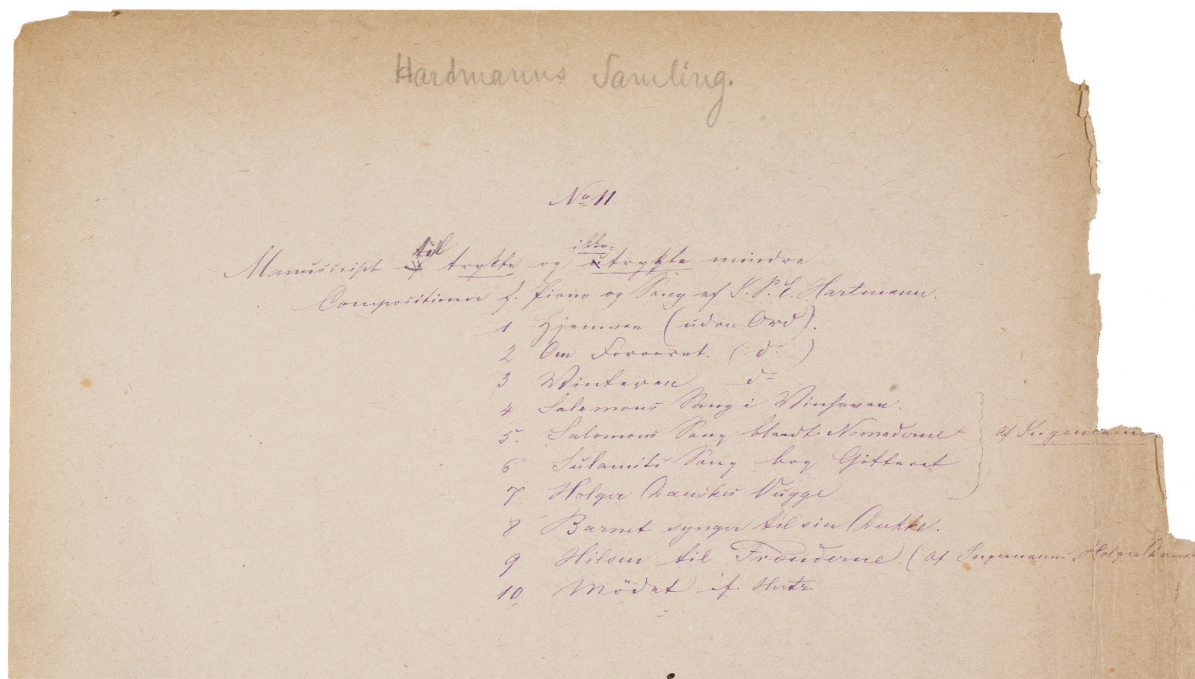 Hardmanns Samling.
No 11
Manuscript til trykte og ikke trykte mindre
Compositioner f. Piano og Sang af J. P. E. Hartmann.
1 Hjemvee (uden Ord).
2 Om Foraaret. (do)
3 Vinteren do
4 Salomons Sang i Vinhaven.
5. Salomons Sang blandt Nomaderne } af Ingemann
6 Sulamits Sang bag Gitteret
7 Holger Danskes Vugge
8 Barnet synger til sin Dukke.
9 Hilsen til Frænderne. (af Ingemanns Holger Danske
10 Mödet af. Hertz.